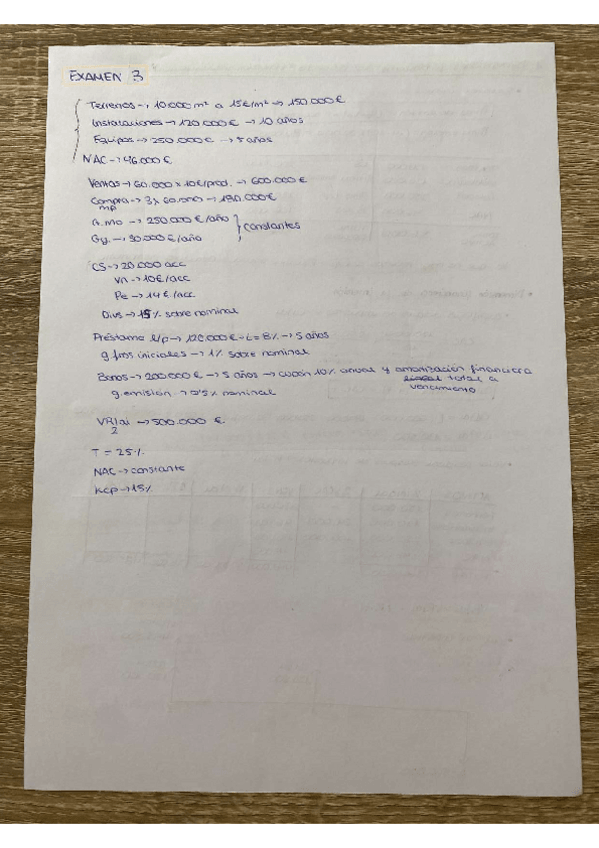 EXAMEN 3
Terrenos → 10.000 m² a 15€/m² → 150.000€
Instalaciones → 120.000€ → 10 años
Equipos → 250.000€ → 5 años
NAC → 46.000€
Ventas → 60.000 x 10€/prod. → 600.000€
Compra mp → 3 x 60.000 → 180.000€
G.MO → 250.000€/año } constantes
Gg. → 30.000€/año
CS → 20.000 acc
VN → 10€/acc
Pe → 14€/acc
Divs → 15% sobre nominal
Préstamo l/p → 120.000€ - i = 8% → 5 años
g. fmos iniciales → 1% sobre nominal
Bonos → 200.000€ → 5 años → cupón 10% anual y amortización financiera
total a
g. emisión → 0'5% nominal
vencimiento
→ 500.000 €
2
T = 25%
NAC → constante
Kcp → 15%